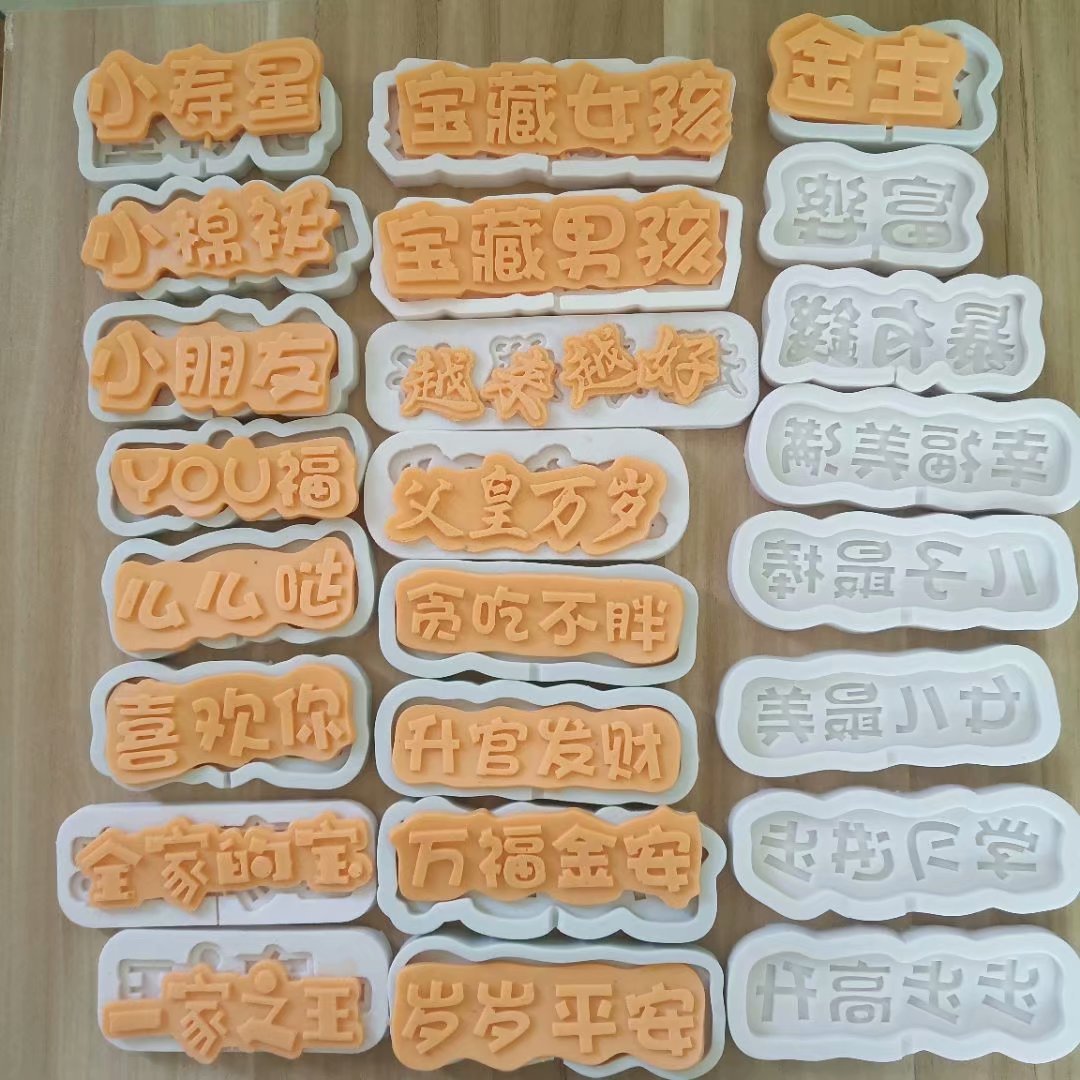 小寿星
小棉袄
小朋友
YOU福
么么哒
喜欢你
全家的宝
一家之主
宝藏女孩
宝藏男孩
越来越好
父皇万岁
贪吃不胖
升官发财
万福金安
岁岁平安
金主
富婆
暴有錢
幸福美满
儿子最棒
女儿最美
学习进步
步步高升